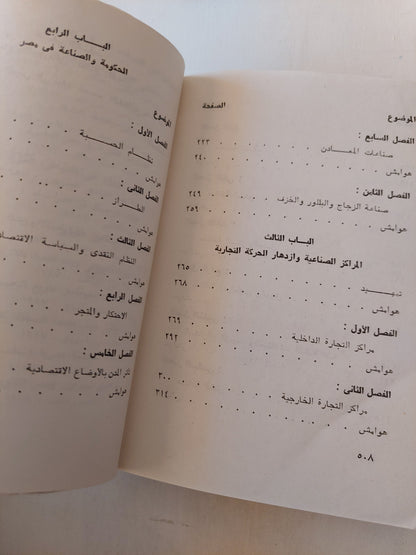 الموضوع الصفحة
الفصل السابع :
صناعات المعادن . . . . . . ٢٢٣
هوامش . . . . . . . . ٢٤٠
الفصل الثامن :
صناعة الزجاج والبللور والخزف . . . ٢٤٩
هوامش . . . . . . . . ٢٥٩
الباب الثالث
المراكز الصناعية وازدهار الحركة التجارية
تمهيد . . . . . . . . ٢٦٥
هوامش . . . . . . . . ٢٦٨
الفصل الأول :
مراكز التجارة الداخلية . . . . . ٢٦٩
هوامش . . . . . . . . ٢٩٢
الفصل الثانى :
مراكز التجارة الخارجية . . . . . ٣٠٠
هوامش . . . . . . . . ٣١٤
٥٠٨
الباب الرابع
الحكومة والصناعة فى مصر
الموضوع
الفصل الأول :
نظام الحسبة . . . .
هوامش . . . .
الفصل الثانى :
الطراز . . . .
هوامش . . . .
الفصل الثالث :
النظام النقدى والسياسة
هوامش . . . .
الفصل الرابع :
الاحتكار والمتجر . . .
هوامش . . . .
الفصل الخامس :
بالأوضاع الاقتصادية
هوامش . . . .